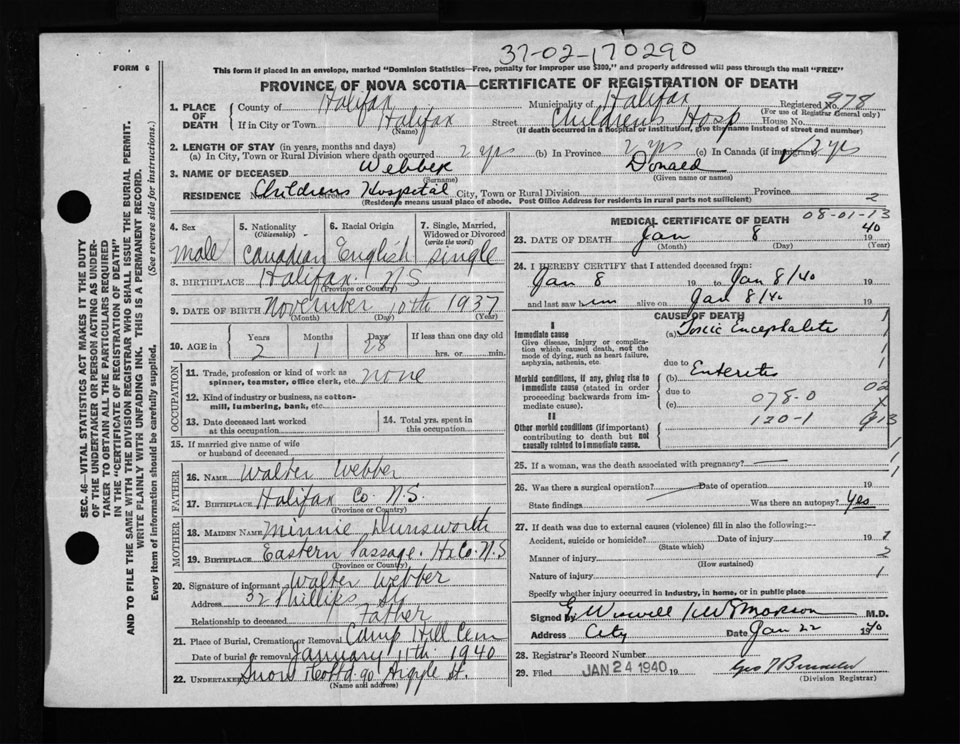 37-02-170290
FORM 6
This form if placed in an envelope, marked "Dominion Statistics—Free, penalty for improper use $300," and properly addressed will pass through the mail "FREE"
PROVINCE OF NOVA SCOTIA—CERTIFICATE OF REGISTRATION OF DEATH
SEC. 46—VITAL STATISTICS ACT MAKES IT THE DUTY
OF THE UNDERTAKER OR PERSON ACTING AS UNDER-
TAKER TO OBTAIN ALL THE PARTICULARS REQUIRED
IN THE "CERTIFICATE OF REGISTRATION OF DEATH"
AND TO FILE THE SAME WITH THE DIVISION REGISTRAR WHO SHALL ISSUE THE BURIAL PERMIT.
WRITE PLAINLY WITH UNFADING INK. THIS IS A PERMANENT RECORD.
Every item of information should be carefully supplied. (See reverse side for instructions.)
1. PLACE OF DEATH
County of Halifax Municipality of Halifax Registered No. 978
(For use of Registrar General only)
If in City or Town Halifax Street Childrens Hosp House No.
(Name) (If death occurred in a hospital or institution, give the name instead of street and number)
2. LENGTH OF STAY (in years, months and days)
(a) In City, Town or Rural Division where death occurred 2 yrs (b) In Province 2 yrs (c) In Canada (if immigrant) 2 yrs
3. NAME OF DECEASED Webber Donald
(Surname) (Given name or names)
RESIDENCE No. Childrens Street Hospital City, Town or Rural Division Province 2
(Residence means usual place of abode. Post Office Address for residents in rural parts not sufficient)
4. Sex male
5. Nationality (Citizenship) Canadian
6. Racial Origin English
7. Single, Married, Widowed or Divorced (write the word) single
8. BIRTHPLACE Halifax N S
(Province or Country)
9. DATE OF BIRTH November 10th 1937
(Month) (Day) (Year)
10. AGE in Years 2 Months 1 Days 28 If less than one day old
hrs. or min.
OCCUPATION
11. Trade, profession or kind of work as
spinner, teamster, office clerk, etc. none
12. Kind of industry or business, as cotton-
mill, lumbering, bank, etc.
13. Date deceased last worked
at this occupation
14. Total yrs. spent in
this occupation
15. If married give name of wife
or husband of deceased
FATHER
16. NAME Walter Webber
17. BIRTHPLACE Halifax Co N.S.
(Province or Country)
MOTHER
18. MAIDEN NAME Minnie Dunsworth
19. BIRTHPLACE Eastern Passage. Hx Co. N.S
(Province or Country)
20. Signature of informant Walter Webber
Address 32 Phillips St
Relationship to deceased Father
21. Place of Burial, Cremation or Removal Camp Hill Cem
Date of burial or removal January 11th 1940
22. UNDERTAKER Snow & Co Ltd 90 Argyle St.
(Name and address)
MEDICAL CERTIFICATE OF DEATH 08-01-13
23. DATE OF DEATH Jan 8 40
(Month) (Day) (Year)
24. I HEREBY CERTIFY that I attended deceased from:
Jan 8 19 to Jan 8/40 19
and last saw him alive on Jan 8/40 19
CAUSE OF DEATH
I
Immediate cause (a) Toxic Encephalitis 1
Give disease, injury or complica-
tion which caused death, not the
mode of dying, such as heart failure,
asphyxia, asthenia, etc. 1
due to 1
Morbid conditions, if any, giving rise to (b) Enteritis
immediate cause (stated in order due to 02
proceeding backwards from im-
mediate cause). (c) 078-0 x
II 120-1 913
Other morbid conditions (if important)
contributing to death but not
causally related to immediate cause. 1
25. If a woman, was the death associated with pregnancy? 1
26. Was there a surgical operation? Date of operation 19
State findings Was there an autopsy? Yes
27. If death was due to external causes (violence) fill in also the following:—
Accident, suicide or homicide? Date of injury 19
(State which)
Manner of injury 2
(How sustained)
Nature of injury 1
Specify whether injury occurred in industry, in home, or in public place
Signed by M.D.
Address City Date Jan 22 1940
28. Registrar's Record Number
29. Filed JAN 24 1940 19
(Division Registrar)